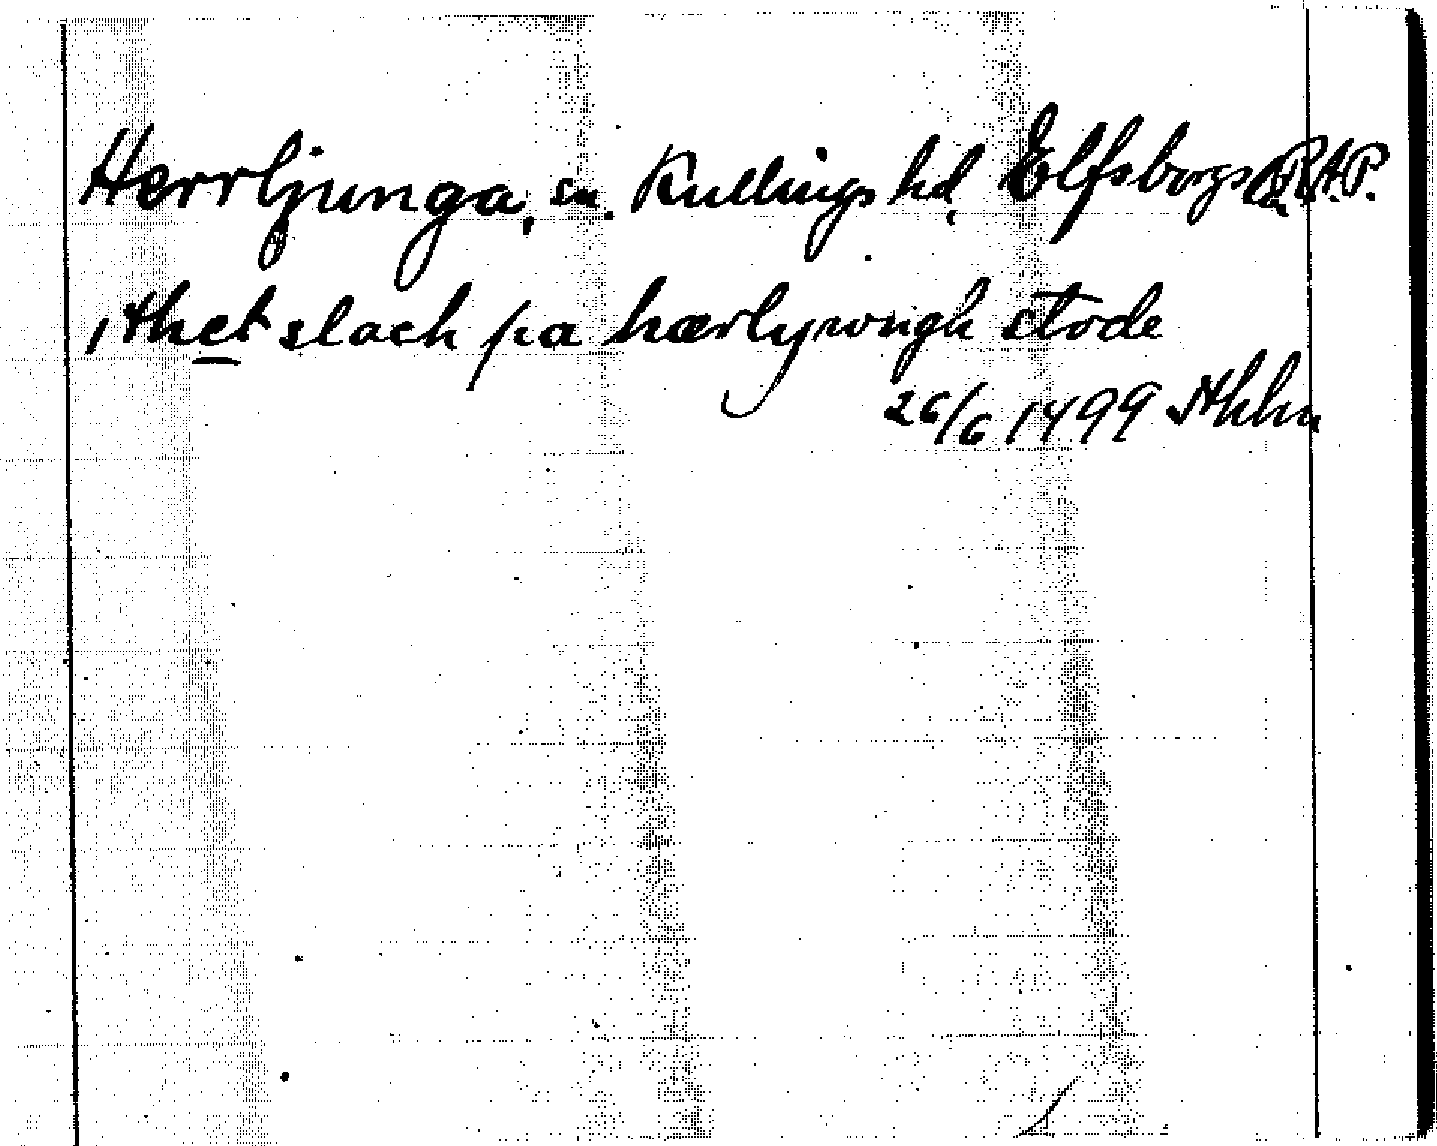 Herrljunga, sn. Kullings hd, Elfsborgs l. RAP.
, thet slach pa hærlywngh stode
26/6 1499 Sthlm